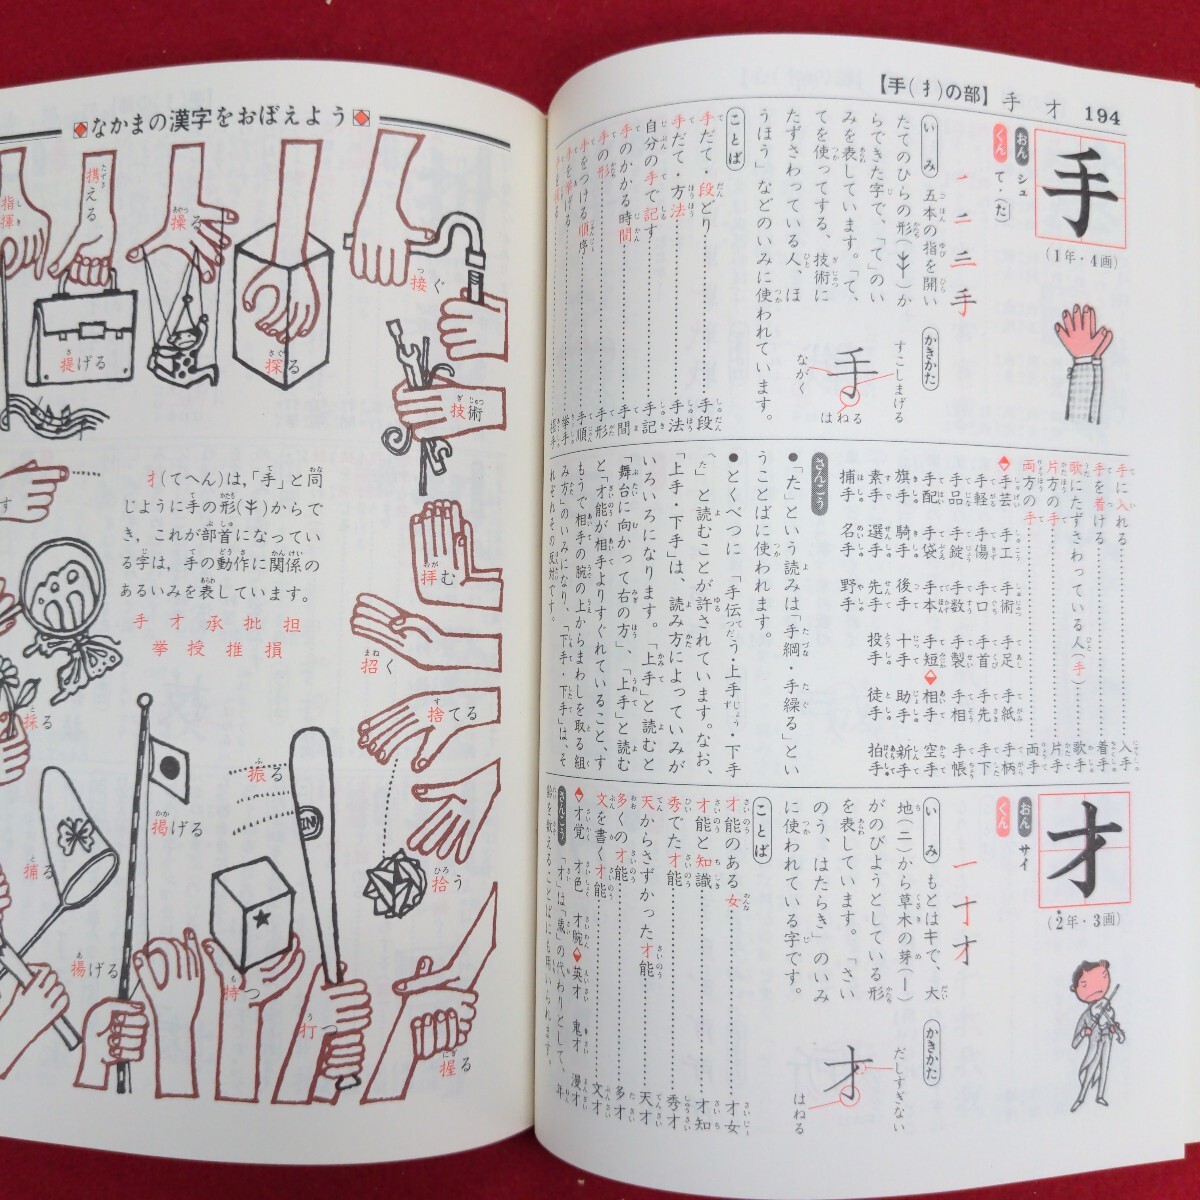 なかまの漢字をおぼえよう
指揮
携える
操る
提げる
探る
接ぐ
技術
拝む
招く
捨てる
拾う
振る
採る
掲げる
捕る
揚げる
持つ
打つ
握る
扌(てへん)は、「手」と同
じように手の形( )からで
き、これが部首になってい
る字は、手の動作に関係の
あるいみを表しています。
手 才 承 批 担
挙 授 推 損
【手(扌)の部】 手 才 194
手
(1年・4画)
おん シュ
くん て・(た)
一 二 三 手
いみ 五本の指を開い
たてのひらの形( )か
らできた字で、「て」のい
みを表しています。「て、
てを使ってする、技術に
たずさわっている人、ほ
うほう」などのいみに使われています。
かきかた
すこしまげる
手
ながく
はねる
ことば
手だて・段どり……手段
手だて・方法……手法
自分の手で記す……手記
手のかかる時間……手間
手の形……手形
手をつける順序……手順
手を挙げる……挙手
手に入れる……入手
手を着ける……着手
歌にたずさわっている人(手)……歌手
片方の手……片手
両方の手……両手
◆手芸 手工 手術 手足 手紙 手柄
手軽 手傷 手口 手首 手先 手下
手品 手錠 手数 手製 手相 手帳
手配 手袋 手本 手短 ◆相手 空手
旗手 騎手 後手 十手 助手 新手
素手 選手 先手 投手 徒手 拍手
捕手 名手 野手
さんこう
●「た」という読みは「手綱・手繰る」とい
うことばに使われます。
●とくべつに「手伝う・上手・下手
」と読むことが許されています。なお、
「上手・下手」は、読み方によっていみが
いろいろになります。「上手」と読むと
「舞台に向かって右の方」、「上手」と読む
と「才能が相手よりすぐれていること、す
もうで相手の腕の上からまわしを取る組
み方」のいみになり、「下手・下手」は、そ
れぞれその反対です。
才
(2年・3画)
おん サイ
くん
一 十 才
いみ もとはキで、大
地(二)から草木の芽(ー)
がのびようとしている形
を表しています。「さい
のう、はたらき」のいみ
に使われている字です。
かきかた
だしすぎない
才
はねる
ことば
才能のある女……才女
才能と知識……才知
秀でた才能……秀才
天からさずかった才能……天才
多くの才能……多才
文を書く才能……文才
◆才覚 才色 才腕 ◆英才 鬼才 漫才
さんこう 「才」は「歳」の代わりとして、年
齢を数えることばにも用いられます。